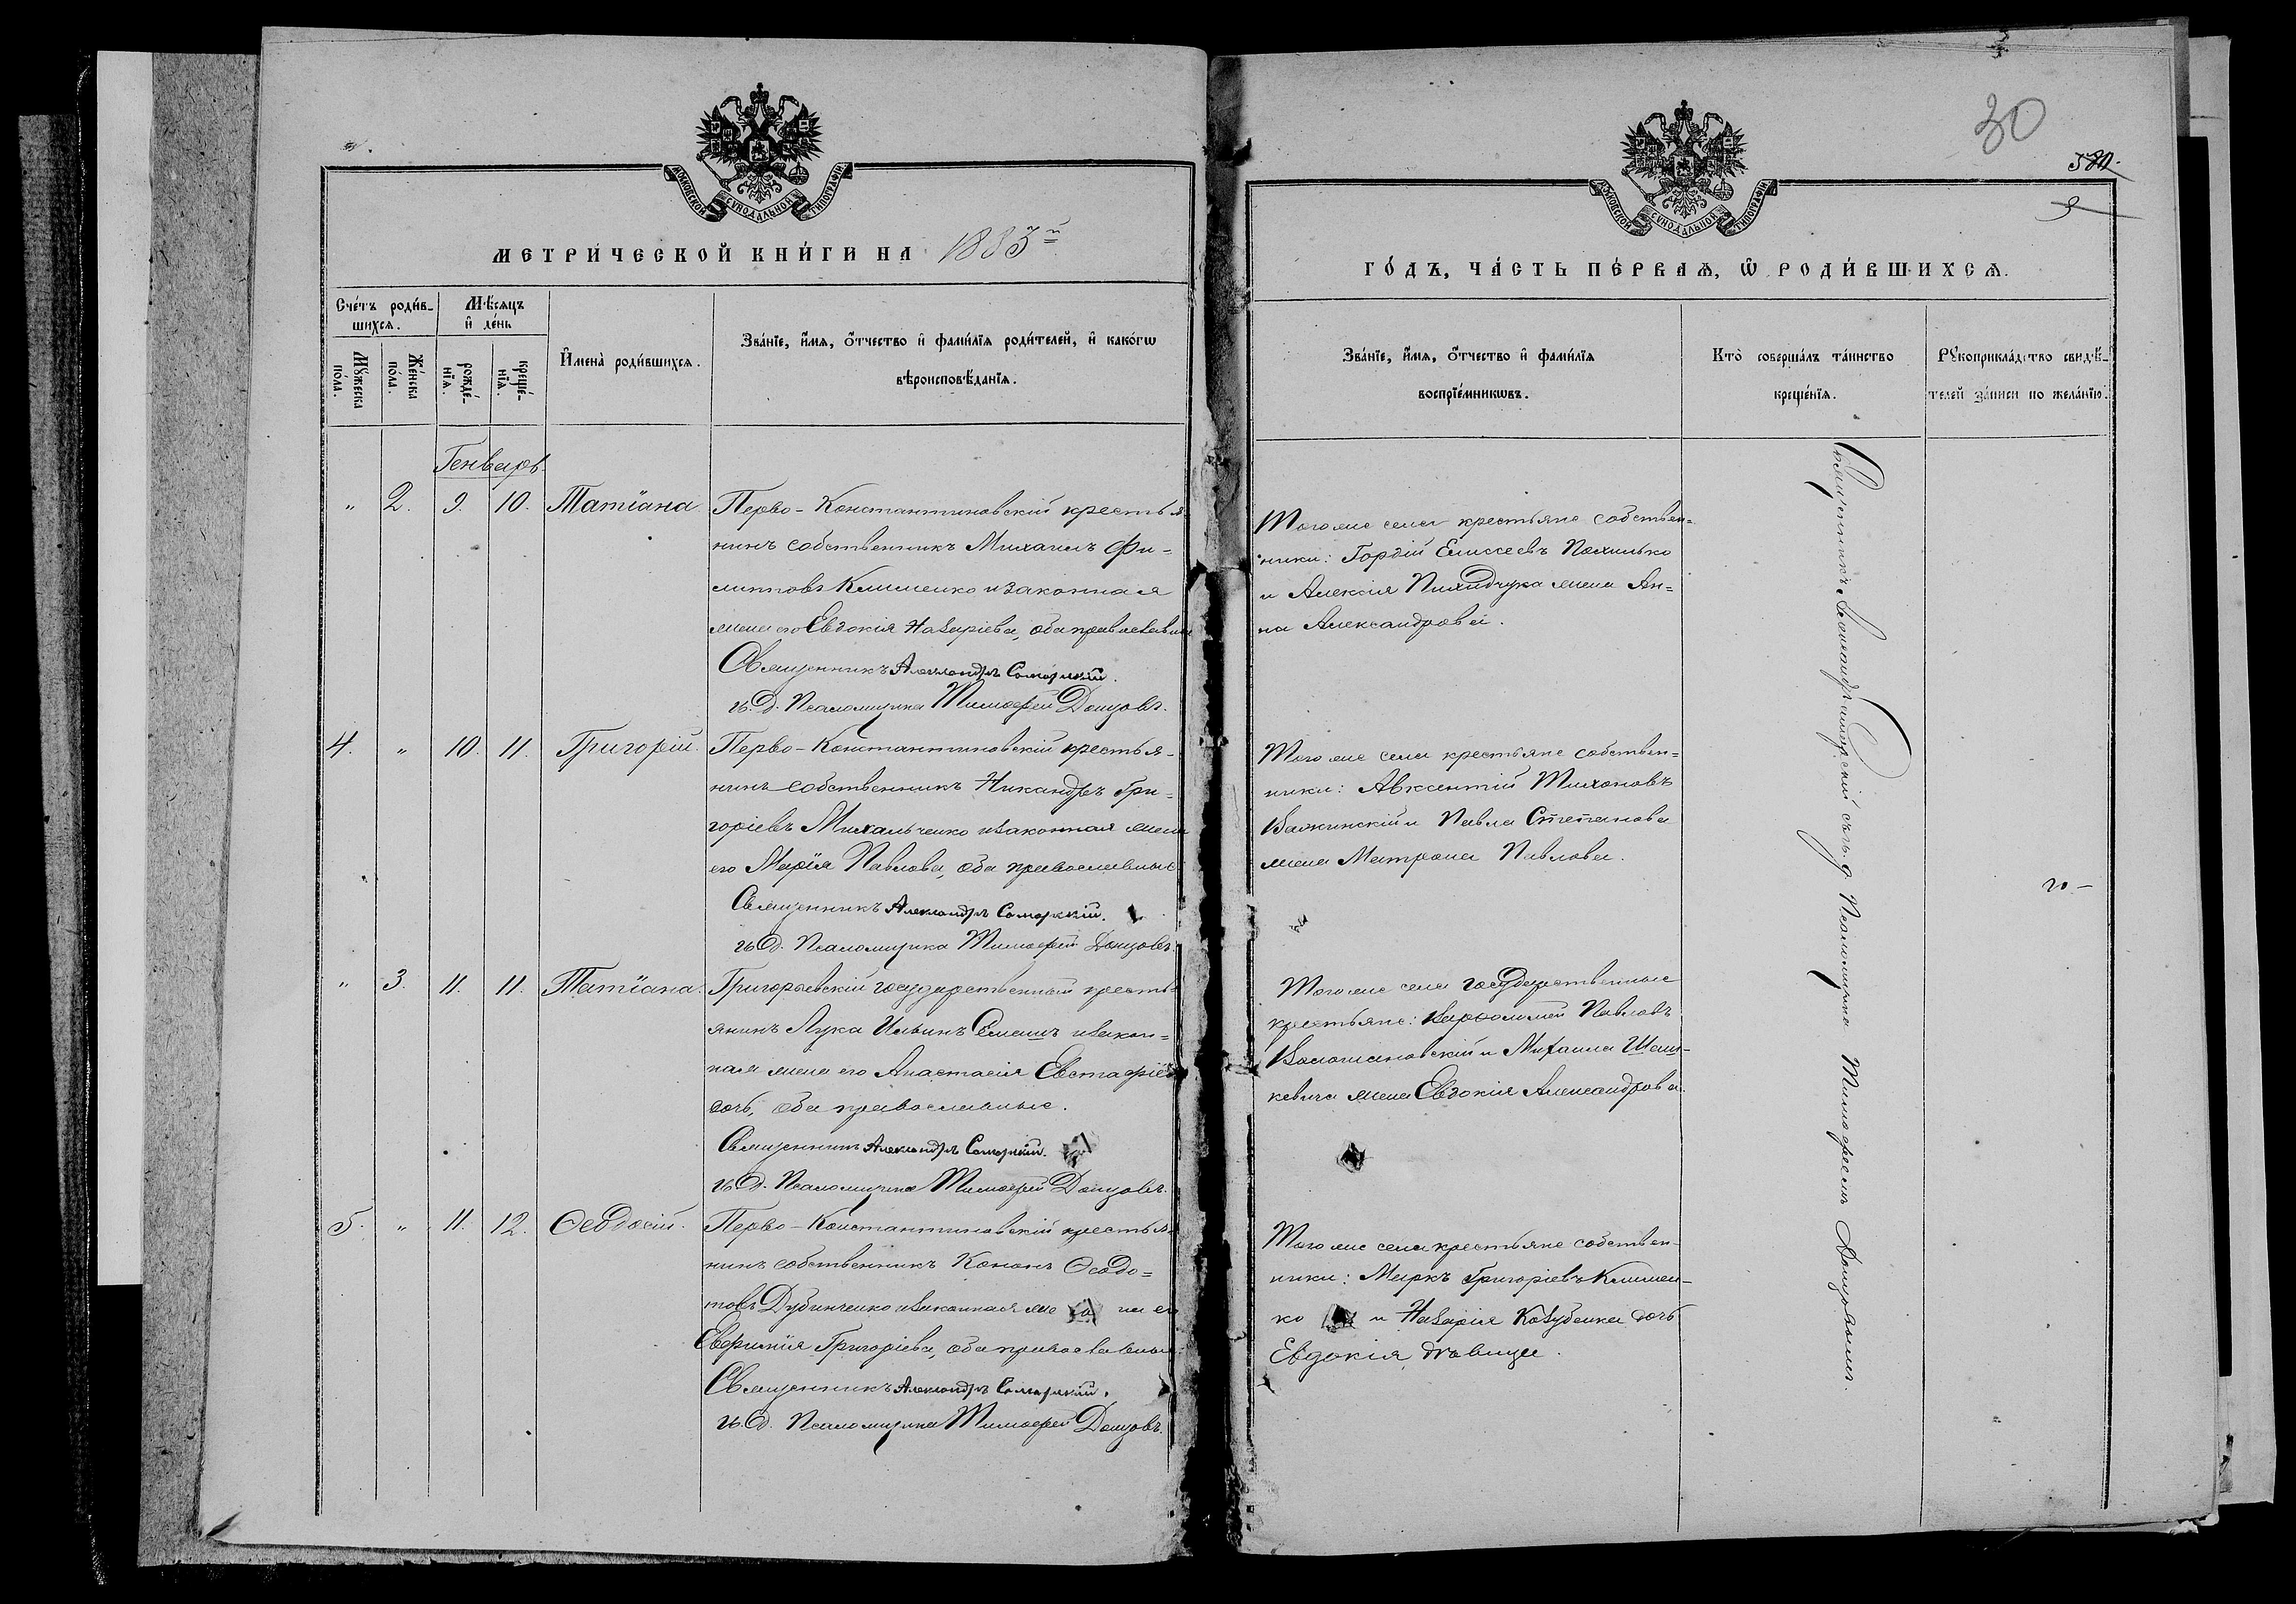 МОСКОВСКОЙ СУНОДАЛЬНОЙ ТИПОГРАФІИ
МЕТРИ́ЧЕСКОЙ КНИ́ГИ НА 1883й
Сче́тъ роди́в-
шихсѧ.
Мѣ́сѧцъ
и҆ де́нь
Мꙋ́жеска
по́ла.
Же́нска
по́ла.
рожде́-
нїѧ.
креще́-
нїѧ.
И҆мена̀ роди́вшихсѧ.
Зва́нїе, и҆́мѧ, ѻ҆́тчество и҆ фами́лїѧ роди́телей, и҆ како́гѡ
вѣроисповѣ́данїѧ.
Генварь
" 2. 9. 10. Татіана
Перво-Константиновскій крестья-
нинъ собственникъ Михаилъ Фи-
липповъ Клименко и законная
жена его Евдокія Назаріева, оба православные
Священникъ Александръ Самарскій.
и. д. Псаломщика Тимофей Донцовъ.
4. " 10. 11. Григорій.
Перво-Константиновскій крестья-
нинъ собственникъ Никандръ Гри-
горіевъ Михальченко и законная жена
его Марія Павлова, оба православные
Священникъ Александръ Самарскій.
и. д. Псаломщика Тимофей Донцовъ.
" 3. 11. 11. Татіана.
Григорьевскій государственный кресть-
янинъ Лука Ильинъ и закон-
ная жена его Анастасія Евстафіе-
ва, оба православные.
Священникъ Александръ Самарскій.
и. д. Псаломщика Тимофей Донцовъ.
5. " 11. 12. Ѳеодосій.
Перво-Константиновскій крестья-
нинъ собственникъ Кононъ Ѳеодо-
товъ Дубинченко и законная же на его
Евфимія Григоріева, оба православные.
Священникъ Александръ Самарскій.
и. д. Псаломщика Тимофей Донцовъ.
30
580.
9
МОСКОВСКОЙ СУНОДАЛЬНОЙ ТИПОГРАФІИ
ГО́ДЪ, ЧА́СТЬ ПЕ́РВАѦ, Ѡ҆ РОДИ́ВШИХСѦ.
Зва́нїе, и҆́мѧ, ѻ҆́тчество и҆ фами́лїѧ
воспрїе́мникѡвъ.
Кто̀ соверша́лъ та́инство
креще́нїѧ.
Рꙋкоприкла́дство свидѣ́-
телей за́писи по жела́нїю.
Того же села крестьяне собствен-
ники: Гордій Елисеевъ Похилько
и Алексія Пилипчука жена Ан-
на Александрова.
Того же села крестьяне собствен-
ники: Авксентій Тихоновъ
Важинскій и Павла Степанова
жена Матрона Павлова.
Того же села государственные
крестьяне: Варѳоломей Павловъ
Воломановскій и Михаила Шаш-
кевича жена Евдокія Александрова.
Того же села крестьяне собствен-
ники: Маркъ Григоріевъ Климен-
ко и Назарія Козубенка дочь
Евдокія дѣвица.
Священникъ Александръ Самарскій съ и. д. Псаломщика Тимофеемъ Донцовымъ.